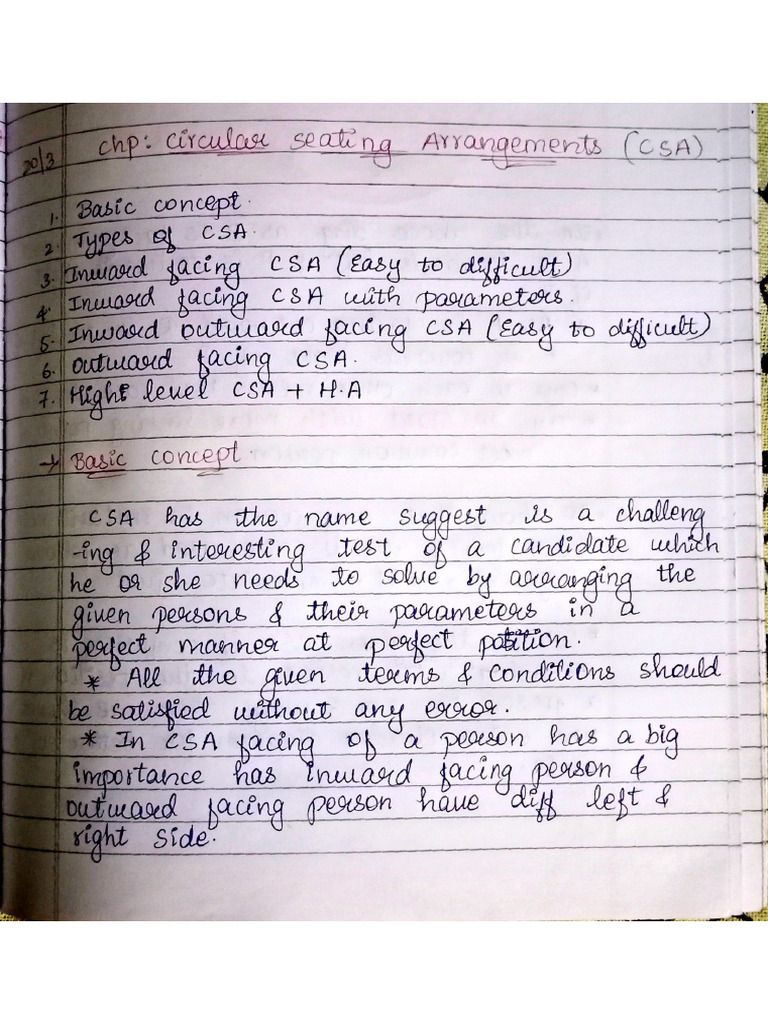 chp: Circular seating Arrangements (CSA)
20/3
1. Basic concept.
2. Types of CSA.
3. Inward facing CSA (Easy to difficult)
4. Inward facing CSA with parameters.
5. Inward outward facing CSA (Easy to difficult)
6. outward facing CSA.
7. High level CSA + H.A
→ Basic concept.
CSA has the name suggest is a challeng
-ing & interesting test of a candidate which
he or she needs to solve by arranging the
given persons & their parameters in a
perfect manner at perfect position.
* All the given terms & conditions should
be satisfied without any error.
* In CSA facing of a person has a big
importance has inward facing person &
outward facing person have diff left &
right side.